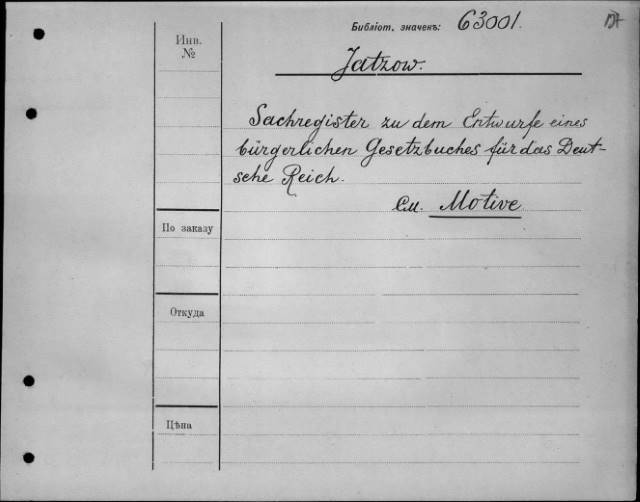 Библіот. значекъ: 63001.
Инв.
№
Jatzow.
Sachregister zu dem Entwurfe eines
bürgerlichen Gesetzbuches für das Deut-
sche Reich.
См. Motive
По заказу
Откуда
Цѣна